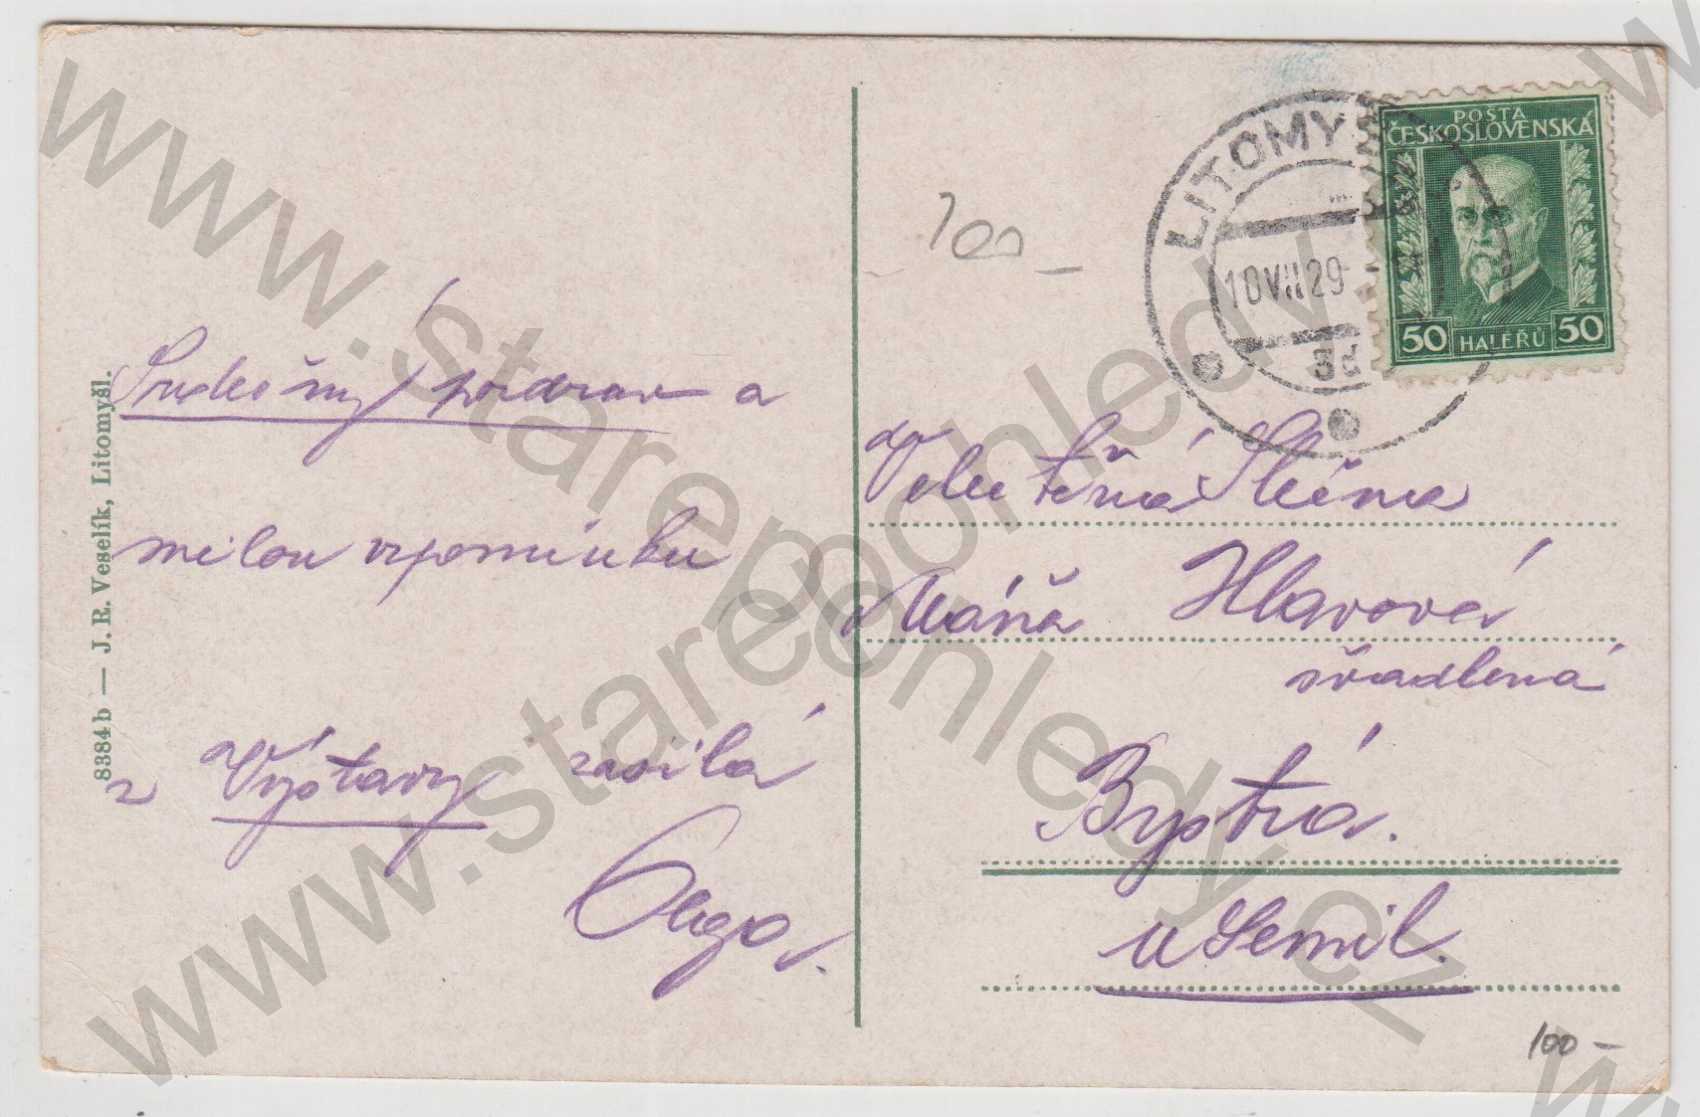 8384 b — J. R. Veselík, Litomyšl.
Srdečný pozdrav a
milou vzpomínku
z Výstavy zasílá
Olga.
100 —
LITOMYŠ
10 VII 29
3d
POŠTA
ČESKOSLOVENSKÁ
50 HALÉŘŮ 50
Velectěná Slečna
Máňa Hlavová
švadlená
Bystrá.
u Semil.
100 —
www.starepohledy.cz
www.starepohledy.cz